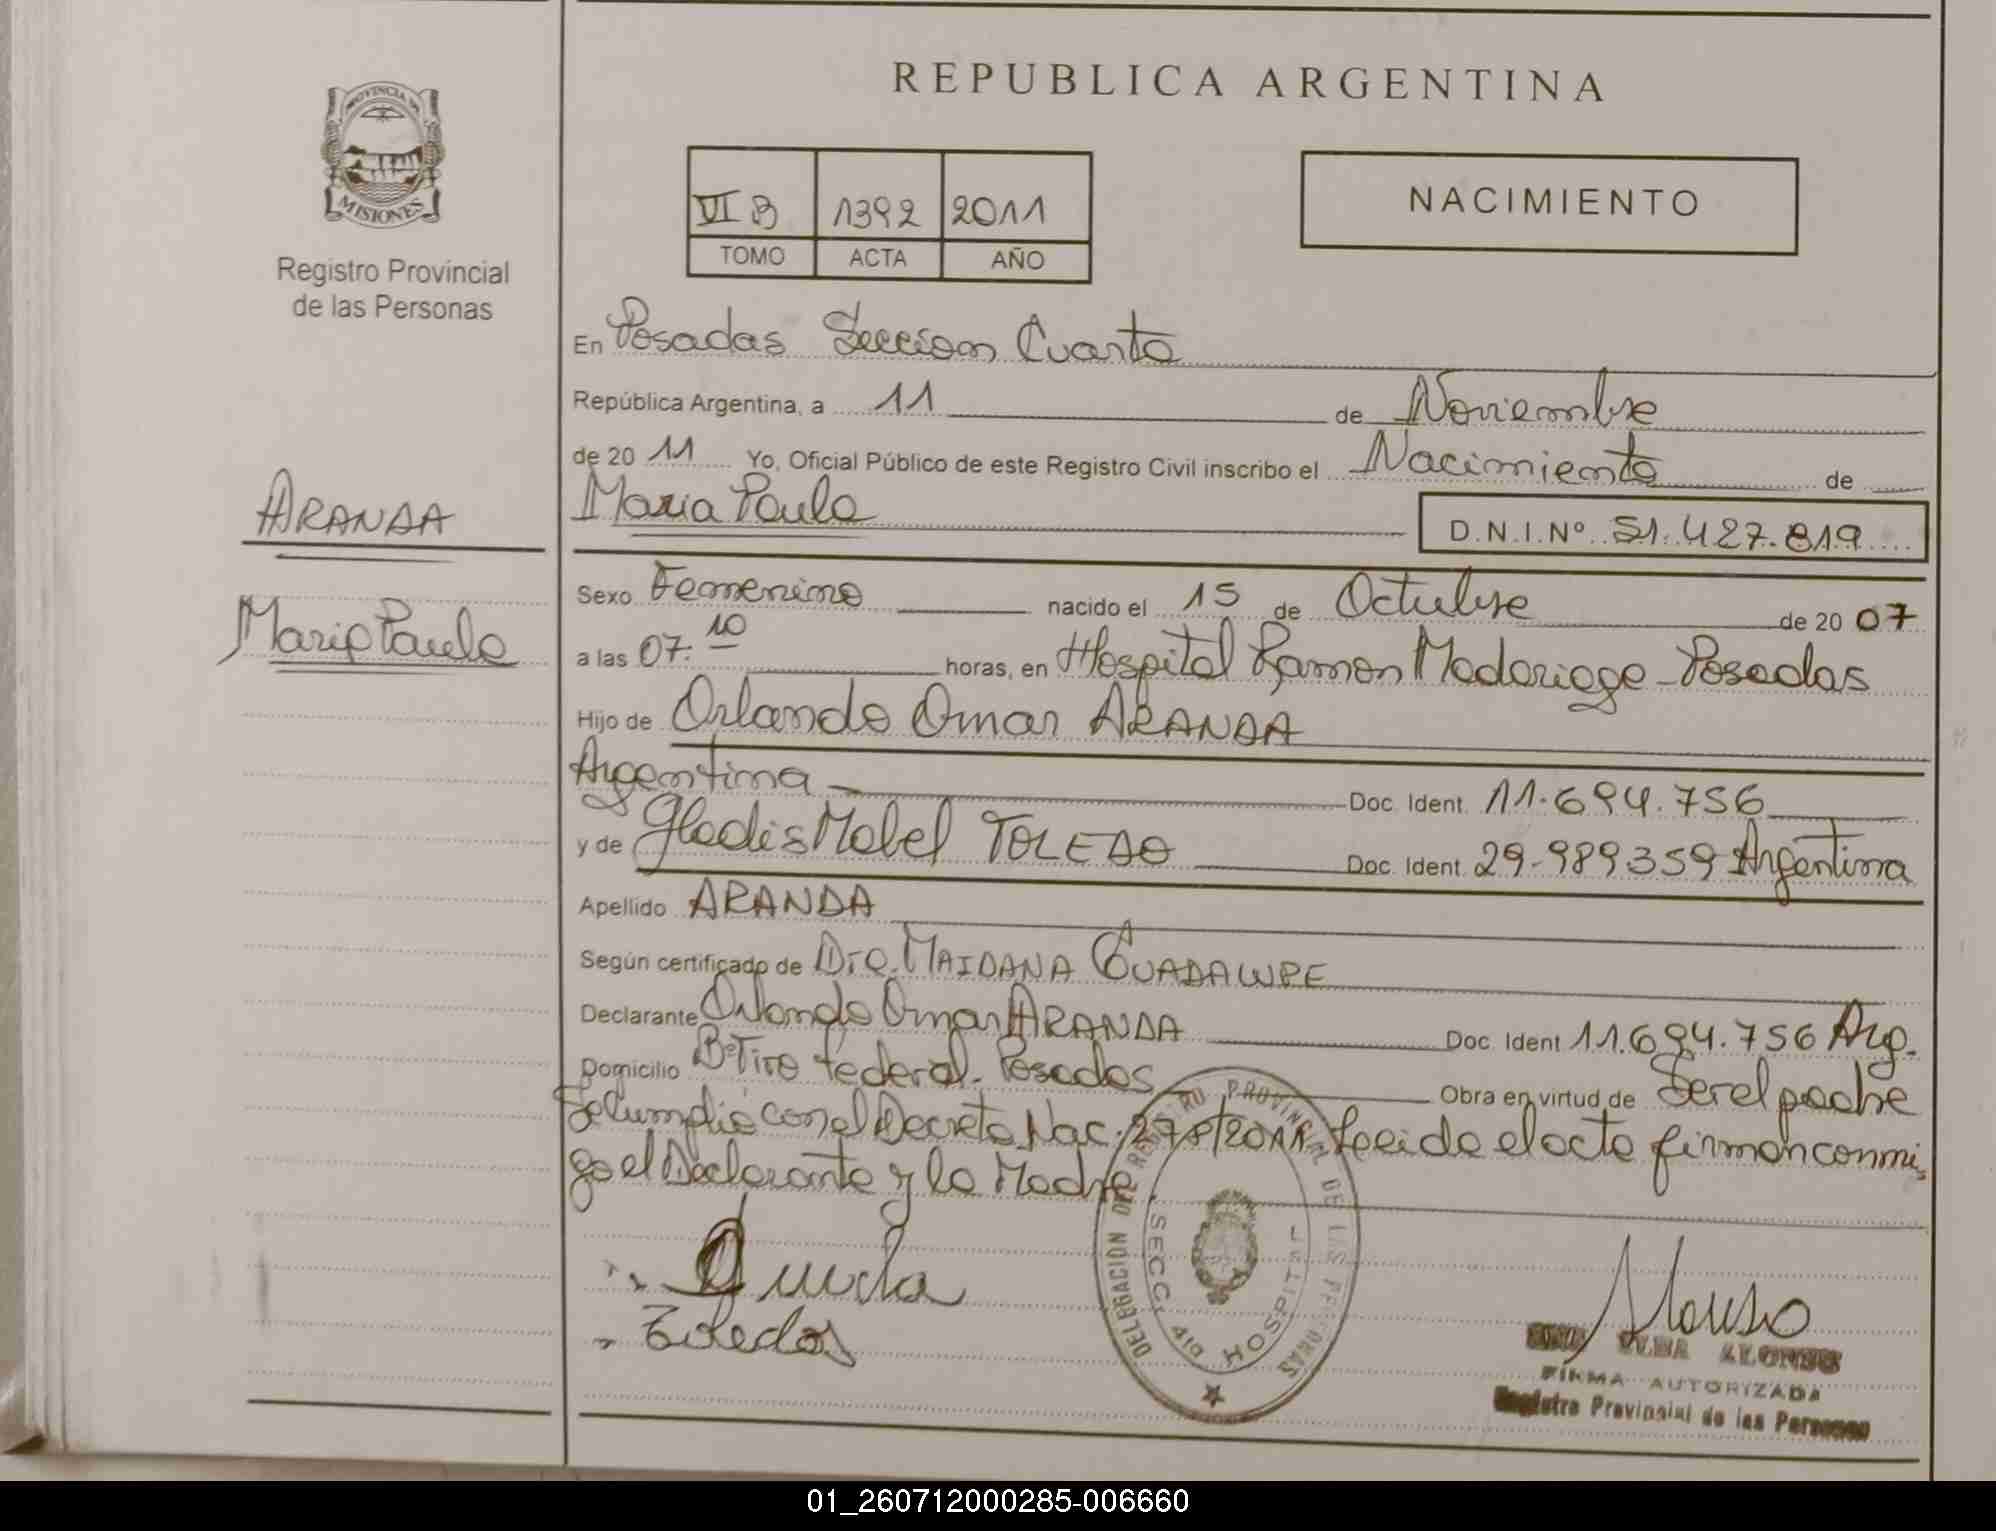 PROVINCIA DE
MISIONES
Registro Provincial
de las Personas
ARANDA
Maria Paula
REPUBLICA ARGENTINA
VI B 1392 2011
TOMO ACTA AÑO
NACIMIENTO
En Posadas Seccion Cuarta
República Argentina, a 11 de Noviembre
de 20 11 Yo, Oficial Público de este Registro Civil inscribo el Nacimiento de
Maria Paula D.N.I.Nº 51.427.819
Sexo Femenino nacido el 15 de Octubre de 20 07
a las 07.10 horas, en Hospital Ramon Madariaga - Posadas
Hijo de Orlando Omar ARANDA
Argentina Doc. Ident. 11.694.756
y de Gladis Mabel TOLEDO Doc. Ident. 29.989.359 Argentina
Apellido ARANDA
Según certificado de Dra. MAIDANA GUADALUPE
Declarante Orlando Omar ARANDA Doc. Ident 11.694.756 Arg.
Domicilio Bº Tiro federal. Posadas Obra en virtud de Ser el padre
Se cumplio con el Decreto Nac. 278/2011. Leida el acta firman conmi
go el Declarante y la Madre.
Toledo
DELEGACION DEL REGISTRO PROVINCIAL DE LAS PERSONAS
SECC. 4ta HOSPITAL
Alonso
ELBA ALONSO
FIRMA AUTORIZADA
Registro Provincial de las Personas
01_260712000285-006660